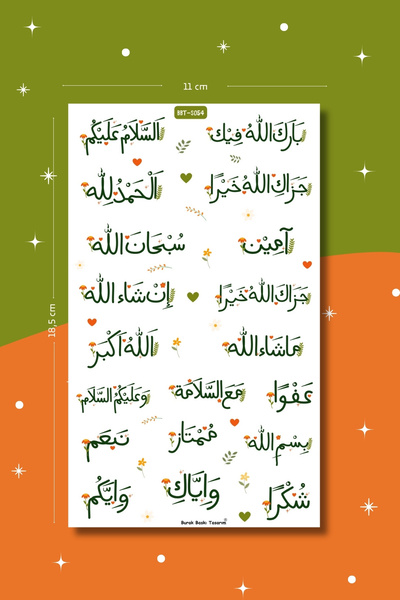 11 cm
BBT-1054
18,5 cm
بَارَكَ اللهُ فِيْكَ
اَلسَّلَامُ عَلَيْكُم
جَزَاكَ اللهُ خَيْرًا
اَلْحَمْدُ لِلّٰه
آمِيْن
سُبْحَانَ الله
جَزَاكَ اللهُ خَيْرًا
إِنْ شَاءَ الله
مَاشَاءَ الله
اَللهُ اَكْبَر
عَفْوًا
مَعَ السَّلَامَة
وَعَلَيْكُمُ السَّلَام
بِسْمِ الله
مُمْتَاز
نَعَم
شُكْرًا
وَاِيَّاكِ
وَاِيَّكُم
Burak Baskı Tasarım